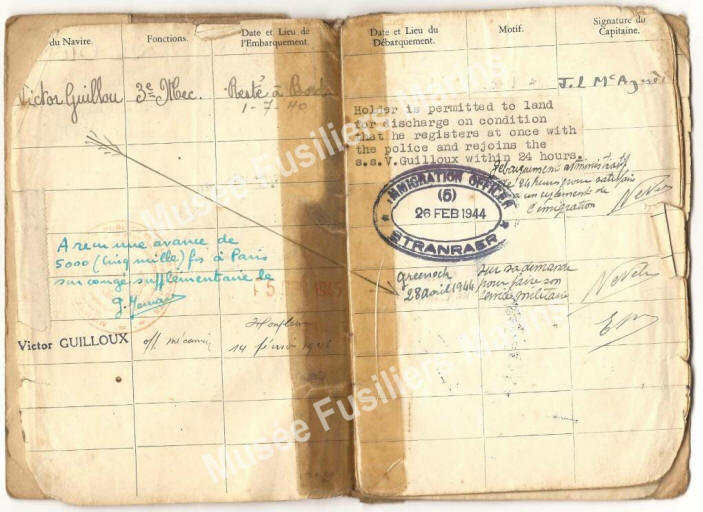 du Navire.
Fonctions.
Date et Lieu de
l'Embarquement.
Victor Guillou 3e Mec. Resté à Bord
1-7-40
A reçu une avance de
5000 (cinq mille) fs à Paris
sur congé supplémentaire le
1945
Victor GUILLOUX off. mécanicien
Honfleur
14 février
Date et Lieu du
Débarquement.
Motif.
Signature du
Capitaine.
J. L McA
Holder is permitted to land
for discharge on condition
that he registers at once with
the police and rejoins the
s.s.V.Guilloux within 24 hours.
Débarquement administratif
de 24 heures pour satisfaire
a un reglement de
d'émigration
IMMIGRATION OFFICER
(5)
26 FEB 1944
STRANRAER
greenock
28 avril 1944
sur sa demande
pour faire son
militaire
Musée Fusiliers Marins
Musée Fusiliers Marins